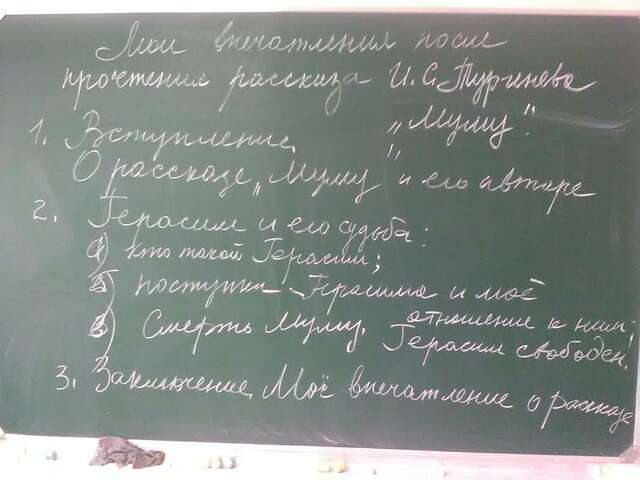 Мои впечатления после
прочтения рассказа И.С.Тургенева
„Муму".
1. Вступление.
О рассказе „Муму" и его авторе
2. Герасим и его судьба:
1) кто такой Герасим;
2) поступки Герасима и моё
отношение к ним;
3) Смерть Муму. Герасим свободен.
3. Заключение. Моё впечатление о рассказе